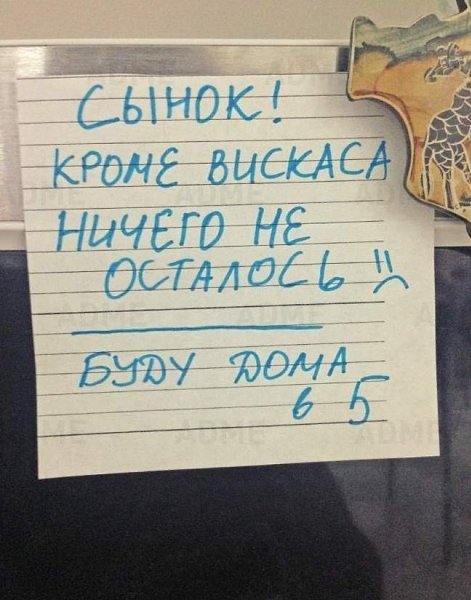 СЫНОК!
КРОМЕ ВИСКАСА
НИЧЕГО НЕ
ОСТАЛОСЬ !!
БУДУ ДОМА
в 5
ADME
ADME
ADME
ADME
ADME